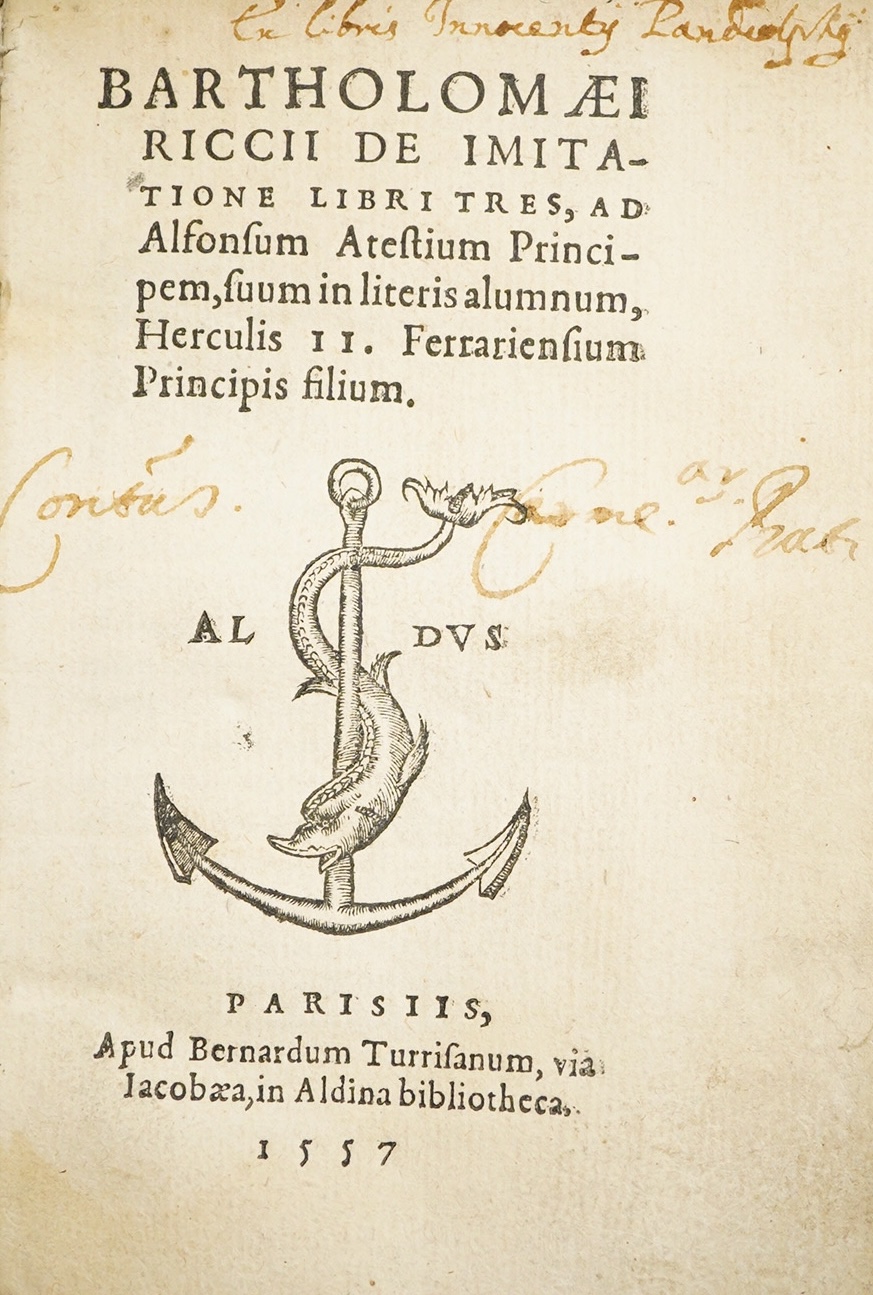 Ex libris Innocentij Pandolphij
BARTHOLOMÆI
RICCII DE IMITA-
TIONE LIBRI TRES, AD
Alfonſum Ateſtium Princi-
pem, ſuum in literis alumnum,
Herculis II. Ferrarienſium
Principis filium.
AL DVS
PARISIIS,
Apud Bernardum Turriſanum, via
Iacobæa, in Aldina bibliotheca.
1557